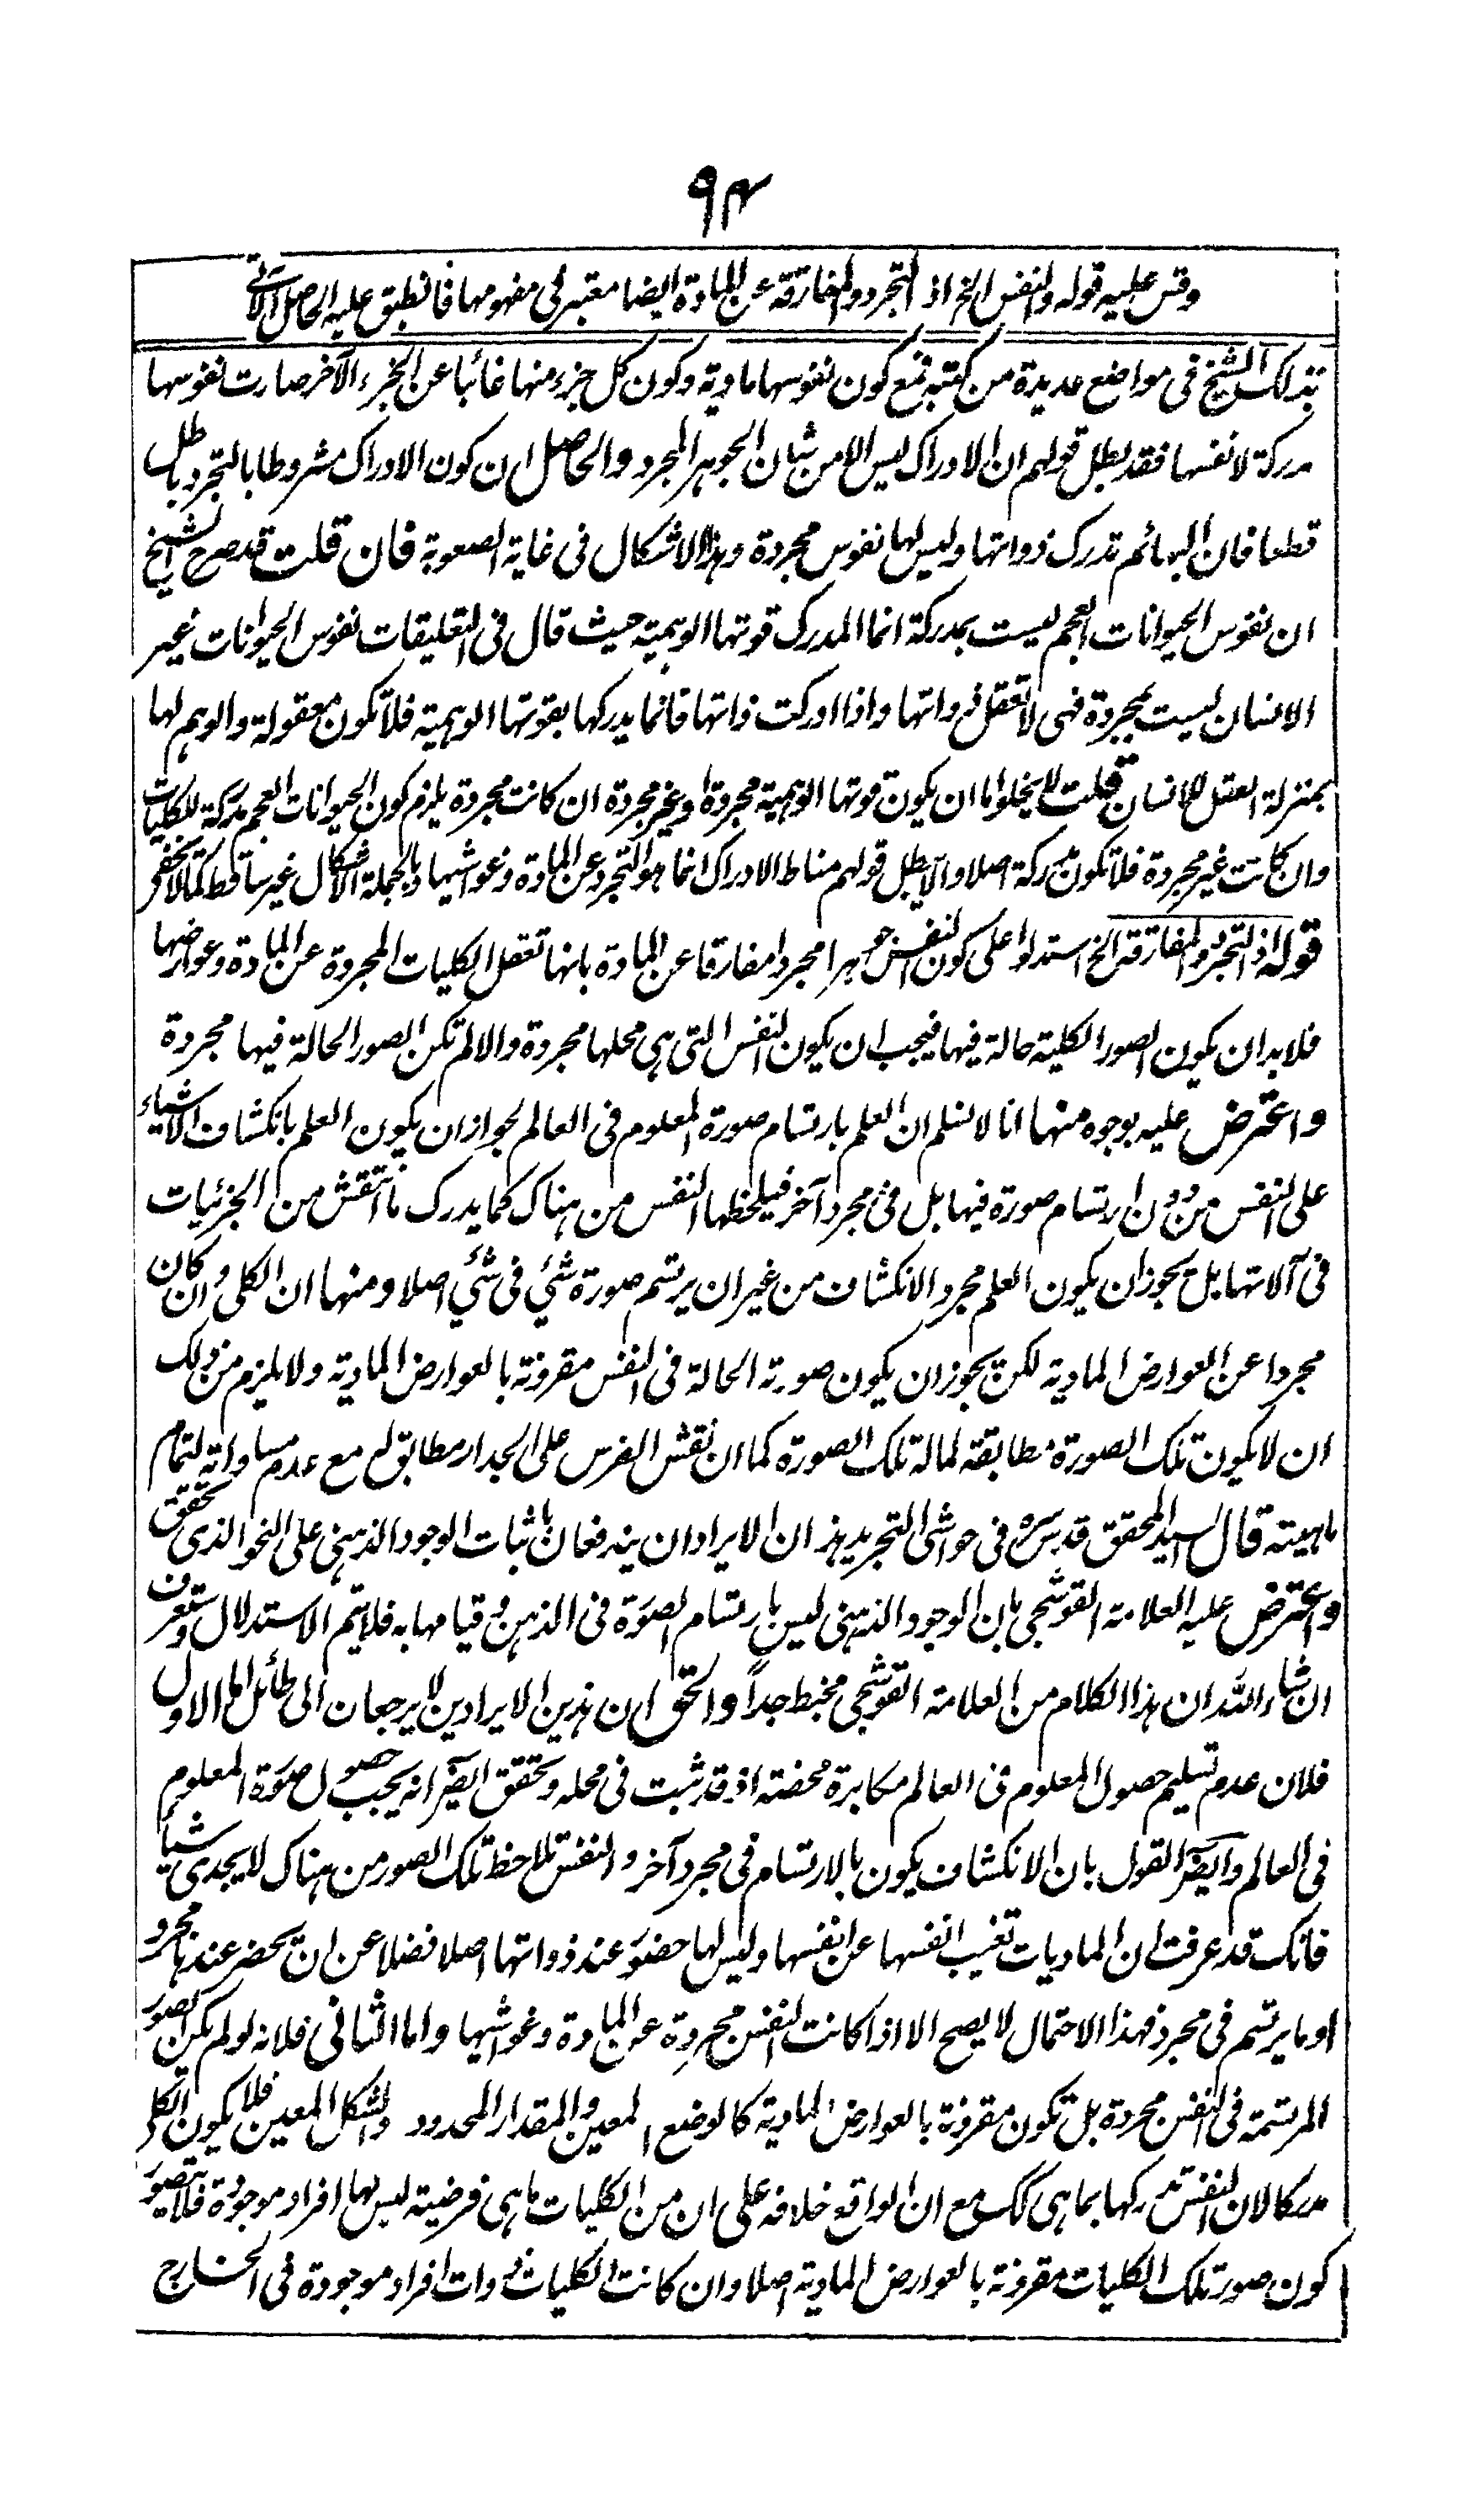 ٩٤
وقس عليه قوله والنفس الخ اذ التجرد والمفارقة عن المادة ايضا معتبر فى مفهومها فانطبق عليه الحاصل الآتى
بذلك الشيخ فى مواضع عديدة من كتبه فمع كون نفوسها مادية وكون كل جزء منها غائبا عن الجزء الآخر صارت نفوسها
مدركة لانفسها فقد بطل قولهم ان الادراك ليس الا من شان الجوهر المجرد والحاصل ان كون الادراك مشروطا بالتجرد باطل
قطعا فان البهائم تدرك ذواتها وليس لها نفوس مجردة وهذا الاشكال فى غاية الصعوبة فان قلت قد صرح الشيخ
ان نفوس الحيوانات العجم ليست بمدركة انما المدرك قوتها الوهمية حيث قال فى التعليقات نفوس الحيوانات غير
الانسان ليست بمجردة فهى لا تعقل ذواتها واذا ادركت ذاتها فانما يدركها بقوتها الوهمية فلا تكون معقولة والوهم لها
بمنزلة العقل للانسان قلت لا يخلو اما ان يكون قوتها الوهمية مجردة او غير مجردة ان كانت مجردة يلزم كون الحيوانات العجم مدركة للكليات
وان كانت غير مجردة فلا تكون مدركة اصلا والا بطل قولهم مناط الادراك انما هو التجرد عن المادة وغواشيها وبالجملة الاشكال غير ساقط كما لا يخفى
قوله اذ التجرد والمفارقة الخ استدلوا على كون النفس جوهرا مجردا مفارقا عن المادة بانها تعقل الكليات المجردة عن المادة وعوارضها
فلا بد ان يكون الصور الكلية حالة فيها فيجب ان يكون النفس التى هى محلها مجردة والا لم تكن الصور الحالة فيها مجردة
واعترض عليه بوجوه منها انا لا نسلم ان العلم بارتسام صورة المعلوم فى العالم لجواز ان يكون العلم بانكشاف الاشياء
على النفس من دون ارتسام صورة فيها بل فى مجرد آخر فيلحظها النفس من هناك كما يدرك ما انتقش من الجزئيات
فى آلاتها بل يجوز ان يكون العلم مجرد الانكشاف من غير ان يرتسم صورة شئ فى شئ اصلا ومنها ان الكلى وان كان
مجردا عن العوارض المادية لكن يجوز ان يكون صورته الحالة فى النفس مقرونة بالعوارض المادية ولا يلزم من ذلك
ان لا يكون تلك الصورة مطابقة لما له تلك الصورة كما ان نقش الفرس على الجدار مطابق له مع عدم مساواته لتمام
ماهيته قال السيد المحقق قدس سره فى حواشى التجريد هذان الايرادان يندفعان باثبات الوجود الذهنى على النحو الذى تحقق
واعترض عليه العلامة القوشجى بان الوجود الذهنى ليس بارتسام الصورة فى الذهن وقيامها به فلا يتم الاستدلال وستعرف
ان شاء الله ان هذا الكلام من العلامة القوشجى مخبط جداً والحق ان هذين الايرادين لا يرجعان الى طائل اما الاول
فلان عدم تسليم حصول المعلوم فى العالم مكابرة محضة اذ قد ثبت فى محله وتحقق ايضا انه يجب حصول صورة المعلوم
فى العالم وايضا القول بان الانكشاف يكون بالارتسام فى مجرد آخر والنفس تلاحظ تلك الصور من هناك لا يجدى شيأ
فانك قد عرفت ان الماديات تغيب انفسها عن انفسها وليس لها حضور عند ذواتها اصلا فضلا عن ان يحضر عندها مجرد
او ما يرتسم فى مجرد فهذا الاحتمال لا يصح الا اذا كانت النفس مجردة عن المادة وغواشيها واما الثانى فلانه لو لم يكن الصور
المرتسمة فى النفس مجردة بل تكون مقرونة بالعوارض المادية كالوضع المعين والمقدار المحدود والشكل المعين فلا يكون الكلى
مدركا لان النفس تدركها بما هى كك مع ان الواقع خلافه على ان من الكليات ما هى فرضية ليس لها افراد موجودة فلا يتصور
كون صورة تلك الكليات مقرونة بالعوارض المادية اصلا وان كانت الكليات ذوات افراد موجودة فى الخارج